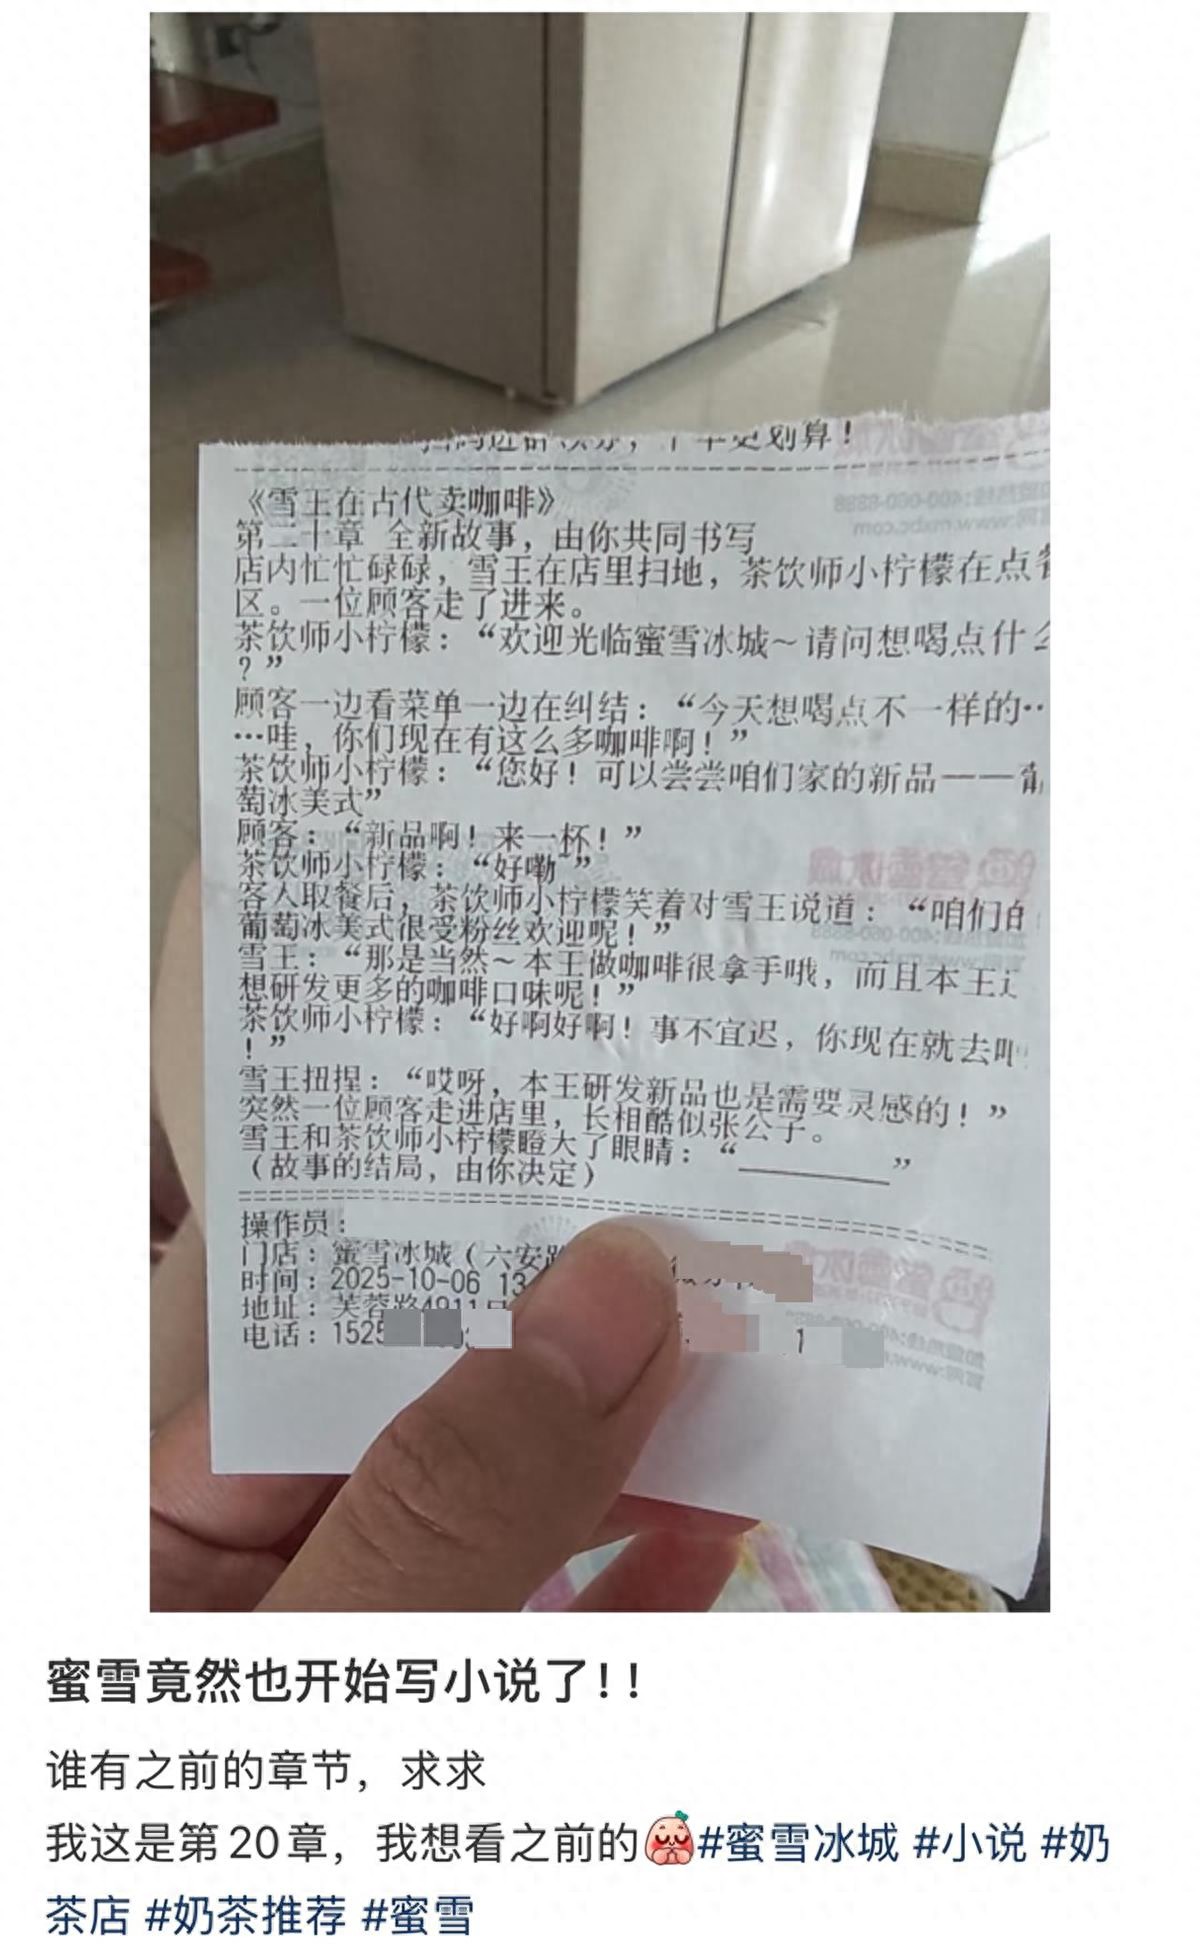 划算！
《雪王在古代卖咖啡》
第二十章 全新故事，由你共同书写
店内忙忙碌碌，雪王在店里扫地，茶饮师小柠檬在点餐
区。一位顾客走了进来。
茶饮师小柠檬：“欢迎光临蜜雪冰城~请问想喝点什么
？”
顾客一边看菜单一边在纠结：“今天想喝点不一样的…
…哇，你们现在有这么多咖啡啊！”
茶饮师小柠檬：“您好！可以尝尝咱们家的新品——葡
萄冰美式”
顾客：“新品啊！来一杯！”
茶饮师小柠檬：“好嘞~”
客人取餐后，茶饮师小柠檬笑着对雪王说道：“咱们的
葡萄冰美式很受粉丝欢迎呢！”
雪王：“那是当然~本王做咖啡很拿手哦，而且本王
想研发更多的咖啡口味呢！”
茶饮师小柠檬：“好啊好啊！事不宜迟，你现在就去吧
！”
雪王扭捏：“哎呀，本王研发新品也是需要灵感的！”
突然一位顾客走进店里，长相酷似张公子。
雪王和茶饮师小柠檬瞪大了眼睛：“________”
（故事的结局，由你决定）
操作员：
门店：蜜雪冰城（六安路
时间：2025-10-06 13
地址：芙蓉路4911号
电话：1525
蜜雪竟然也开始写小说了！！
谁有之前的章节，求求
我这是第20章，我想看之前的#蜜雪冰城 #小说 #奶
茶店 #奶茶推荐 #蜜雪